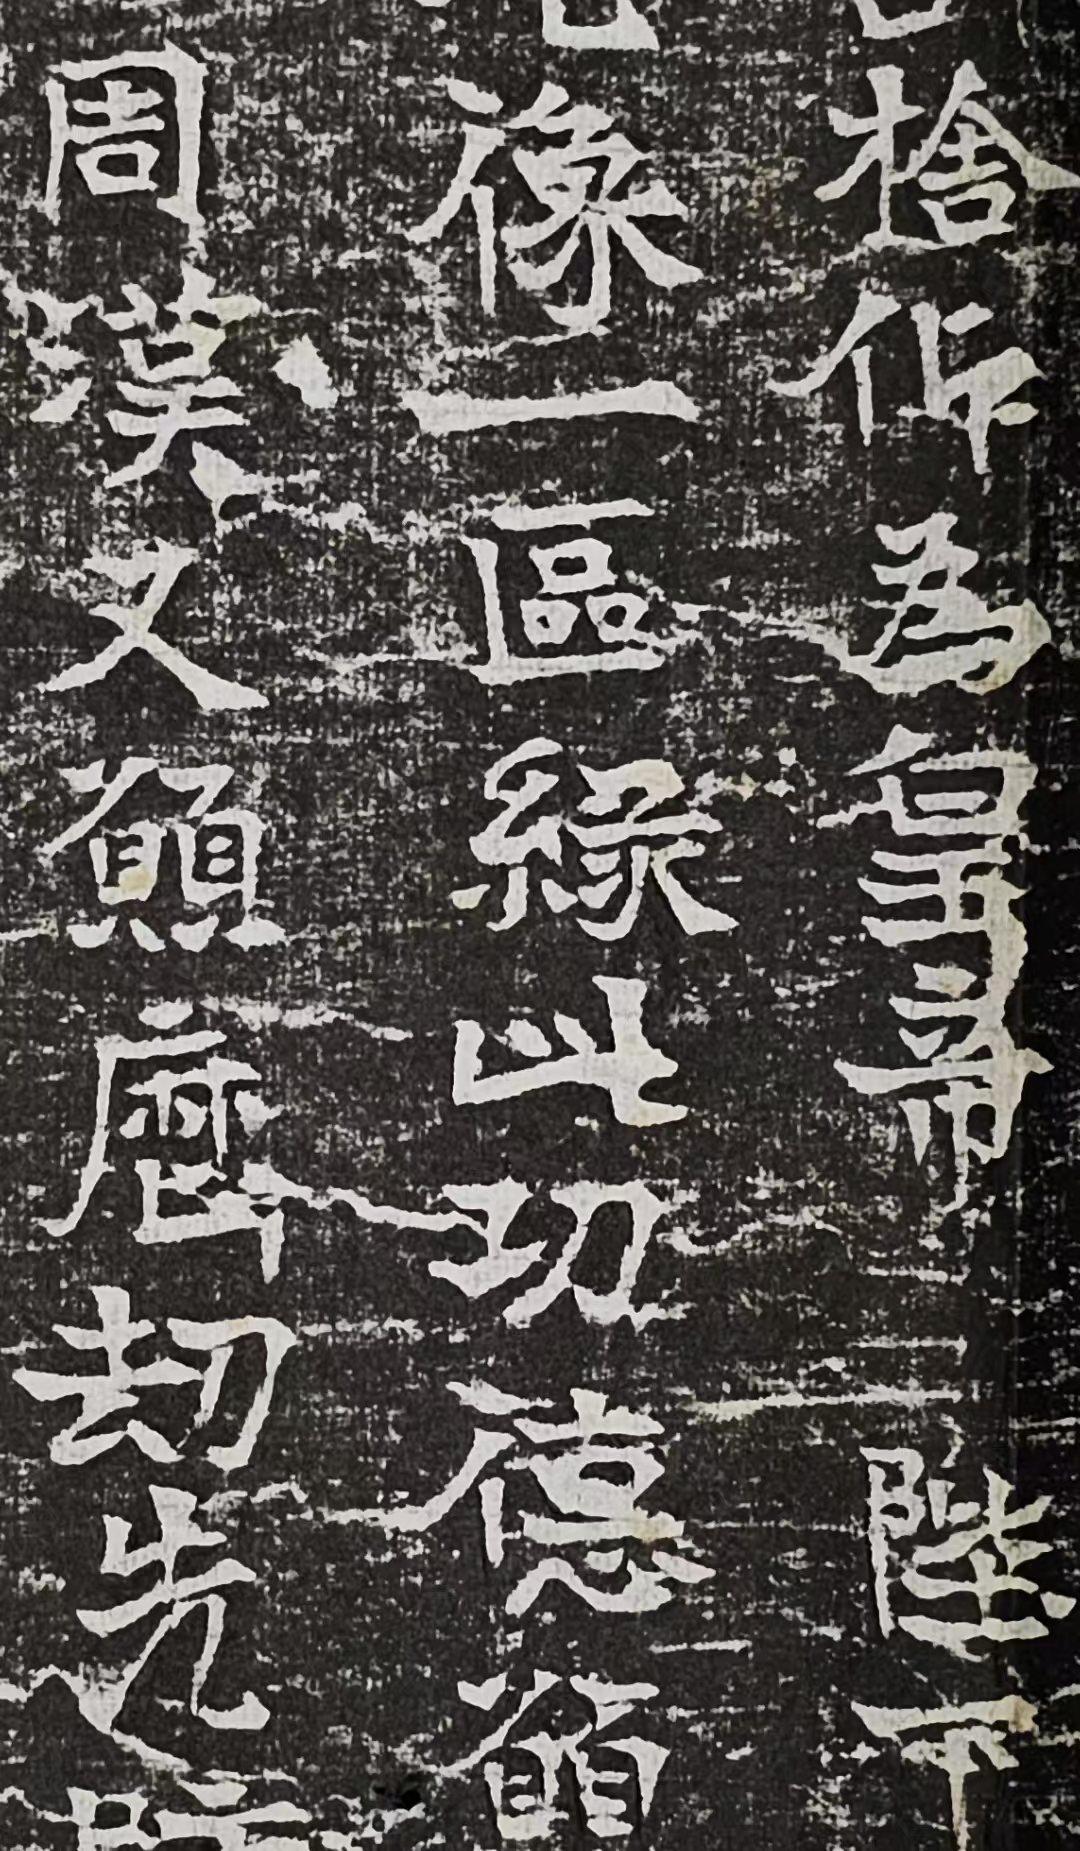 捨作為皇帝陛下
像一區緣此功德願
周漢又願歷劫先